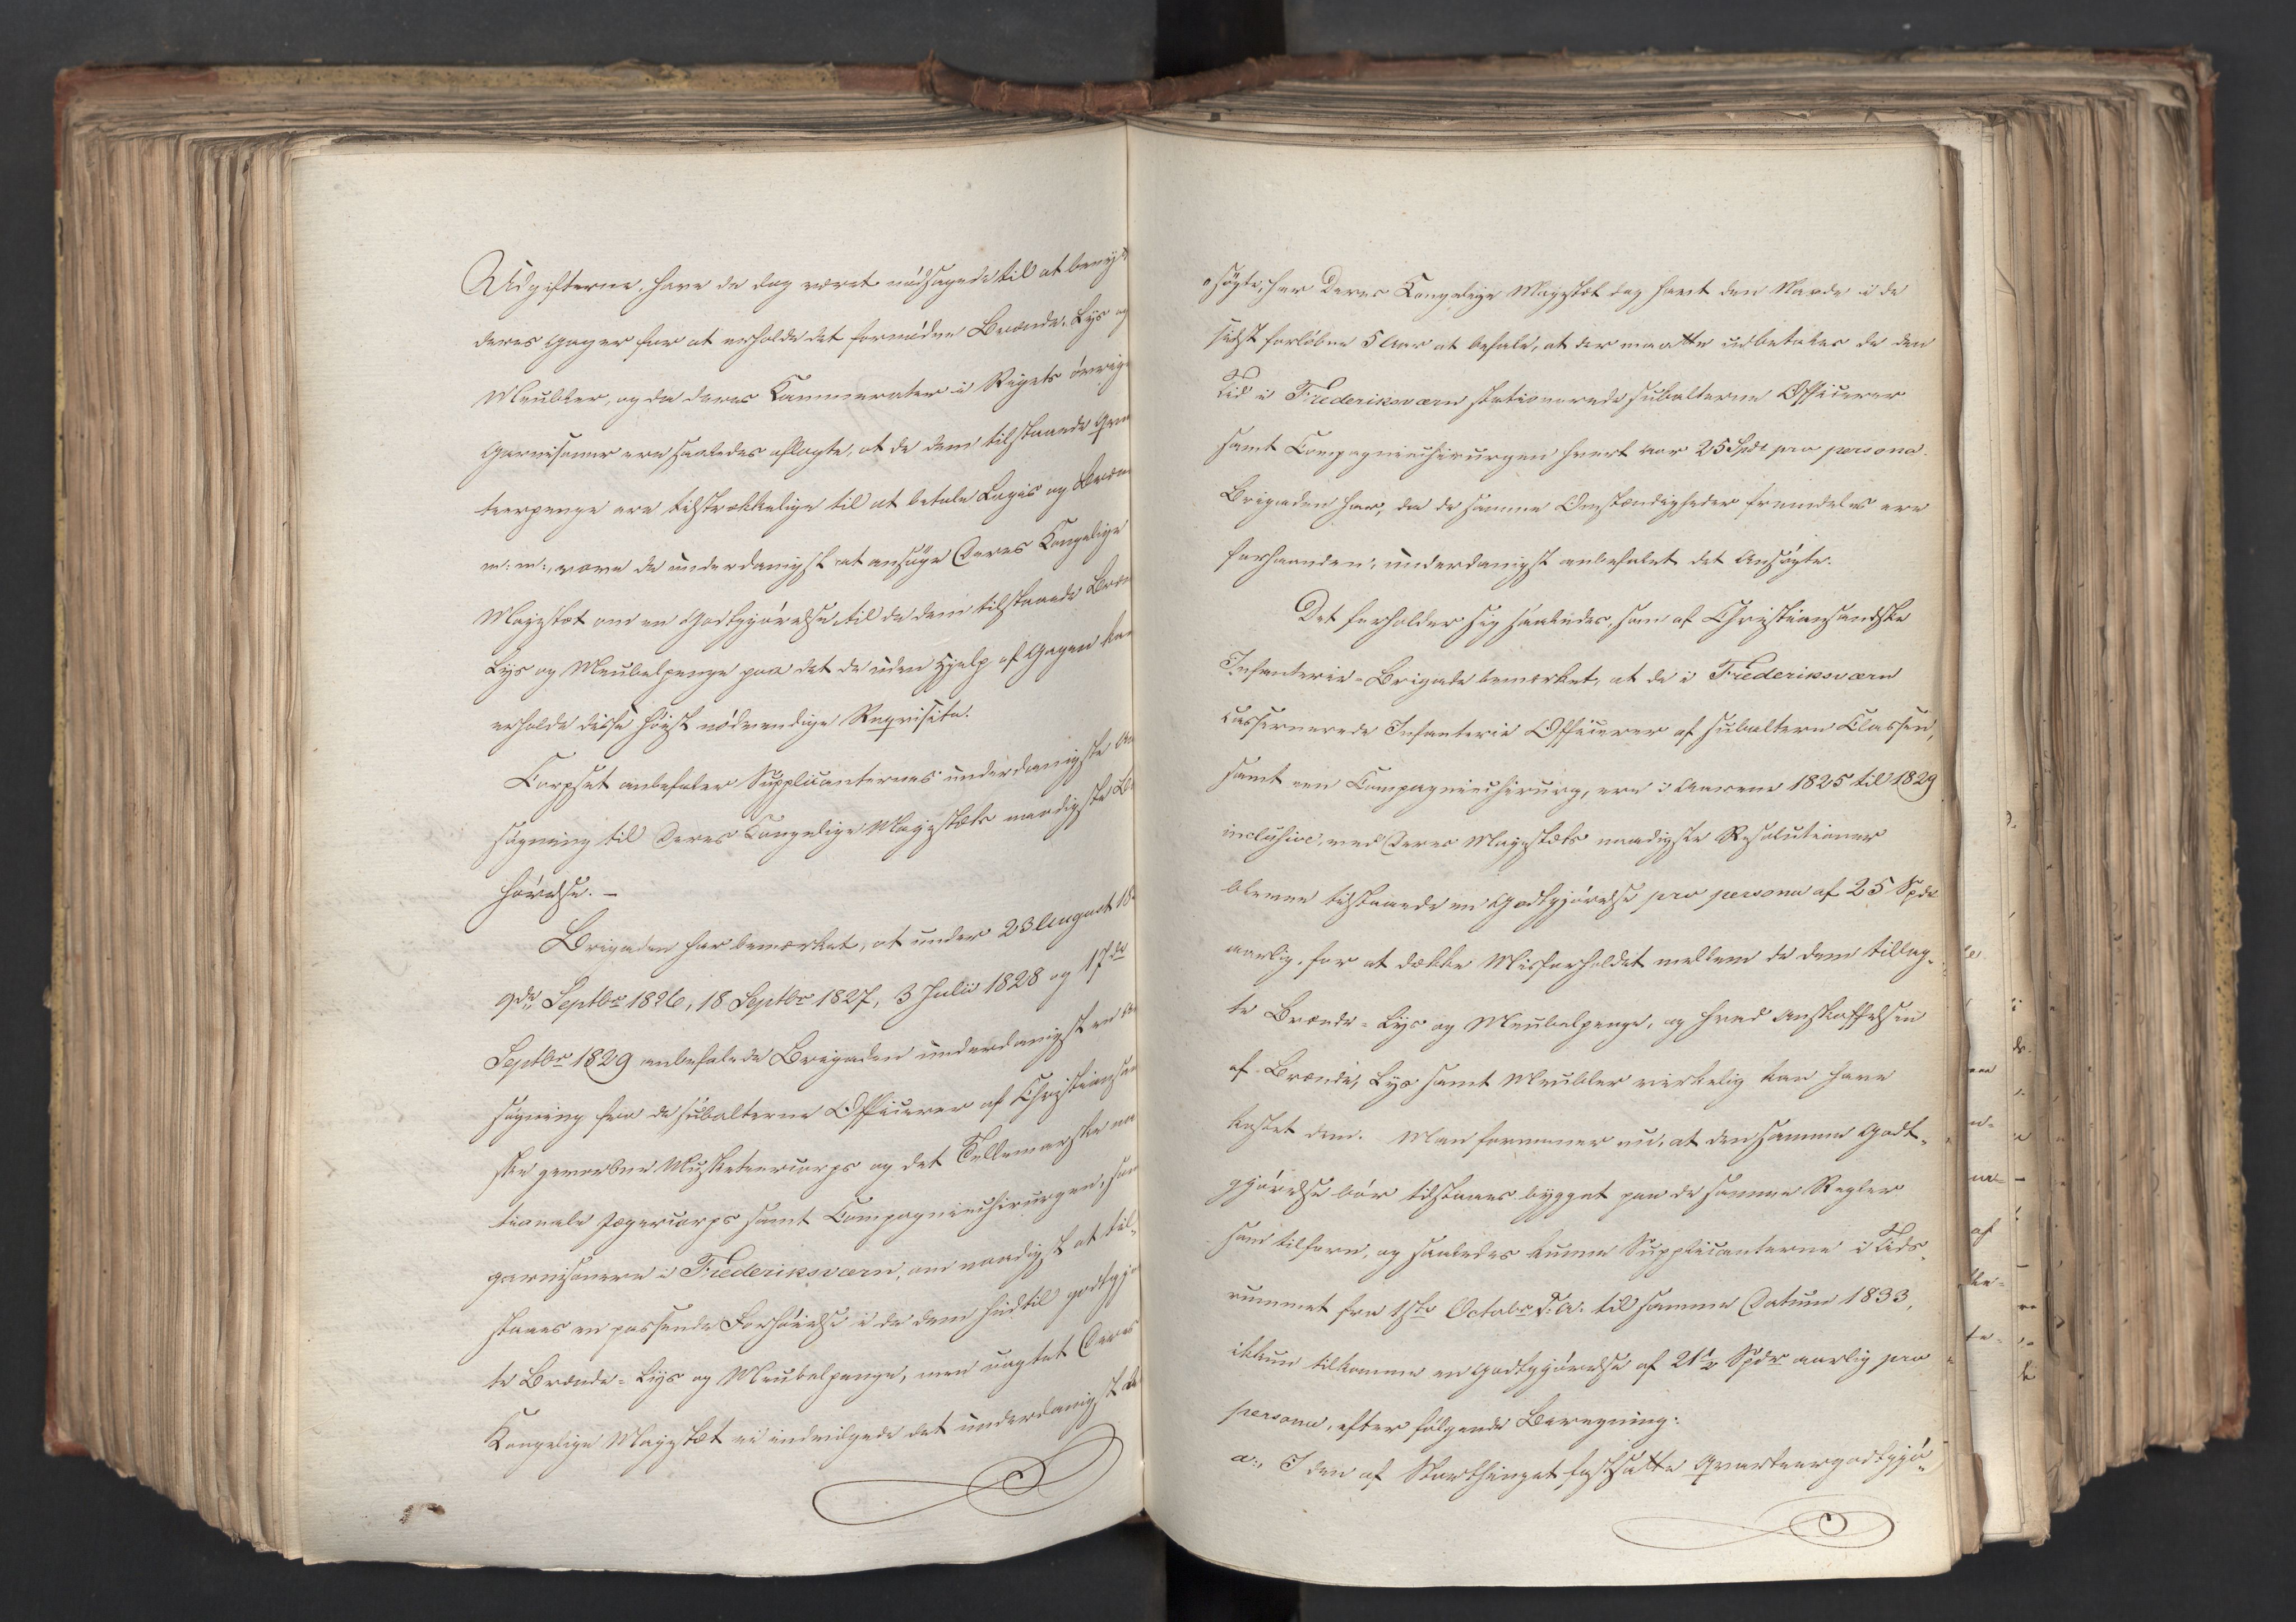 Udgifterne, have de dog været nödsagede til at beny
deres Gager for at erholde det fornödne Brænde, Lys og
Meubler, og da deres Kammerater i Rigets övrige
Garnisoner ere saaledes aflagte, at de dem tilstaaede Qvar
teerpenge ere tilstrækkelige til at betale Logis og Bræn
m: m:, vove de underdanigst at ansöge Deres Kongelige
Majestæt om en Godtgjörelse til de dem tilstaaede Bræn
Lys og Meubelpenge paa det de uden Hjelp af Gagen kan
erholde disse höist nödvendige Reqvisita.
Corpset anbefaler Supplicanternes underdanigste An
sögning til Deres Kongelige Majestæts naadigste Bön
hörelse. –
Brigaden har bemærket, at under 23 August 18
9de Septbr 1826, 18 Septbr 1827, 3 Julii 1828 og 17de
Septbr 1829 anbefalede Brigaden underdanigst en An
sögning fra de subalterne Officierer af Christiansand
ske gevorbne Musketeercorps og det Tellemarkske na
tionale Jægercorps samt Compagniechirurgen, som
garnisonere i Frederiksværn, om naadigst at til-
staaes en passende Forhöielse i de dem hidtil godtgjor
te Brænde- Lys og Meubelpenge, men uagtet Deres
Kongelige Majestæt ei indvilgede det underdanigst An
sögte, har Deres Kongelige Majestæt dog havt den Naade i de
sidst forlöbne 5 Aar at befale, at der maatte udbetales de den
Tid i Frederiksværn stationerede subalterne Officierer
samt Compagniechirurgen hvert Aar 25 Spdr pro persona.
Brigaden har, da de samme Omstændigheder fremdeles ere
forhaanden, underdanigst anbefalet det Ansögte.
Det forholder sig saaledes, som af Christiansandske
Infanterie-Brigade bemærket, at de i Frederiksværn
casernerede Infanterie Officierer af subaltern Classen,
samt een Compagniechirurg, ere i Aarene 1825 til 1829
inclusive, ved Deres Majestæts naadigste Resolutioner
blevne tilstaaede en Godtgjörelse pro persona af 25 Spdr
aarlig, for at dække Misforholdet mellem de dem tillag-
te Brænde- Lys og Meubelpenge, og hvad Anskaffelsen
af Brænde, Lys samt Meubler virkelig kan have
kostet dem. Man formener nu, at den samme Godt-
gjörelse bör tilstaaes bygget paa de samme Regler
som tilforn, og saaledes kunne Supplicanterne i Tids-
rummet fra 1ste Octobr d: A: til samme Datum 1833,
ikkun tilkomme en Godtgjörelse af 21½ Spdr aarlig pro
persona, efter fölgende Beregning:
a:, I den af Storthinget fastsatte Qvarteergodtgjö-